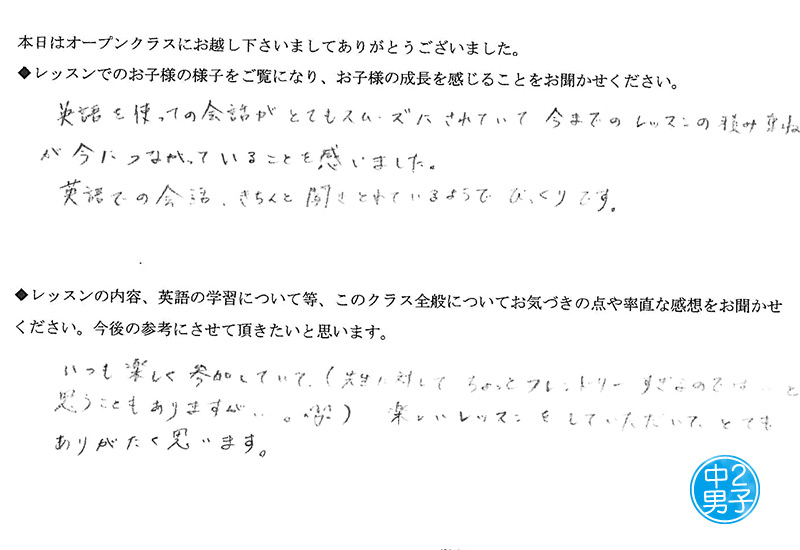 本日はオープンクラスにお越し下さいましてありがとうございました。
◆レッスンでのお子様の様子をご覧になり、お子様の成長を感じることをお聞かせください。
英語を使っての会話がとてもスムーズにされていて今までのレッスンの積み重ね
が今につながっていることを感いました。
英語での会話、きちんと聞きとれているようでびっくりです。
◆レッスンの内容、英語の学習について等、このクラス全般についてお気づきの点や率直な感想をお聞かせ
ください。今後の参考にさせて頂きたいと思います。
いつも楽しく参加していて、(先生に対してちょっとフレンドリーすぎるのでは…と
思うこともありますが…。) 楽しいレッスンをしていただいて、とても
ありがたく思います。
中2
男子